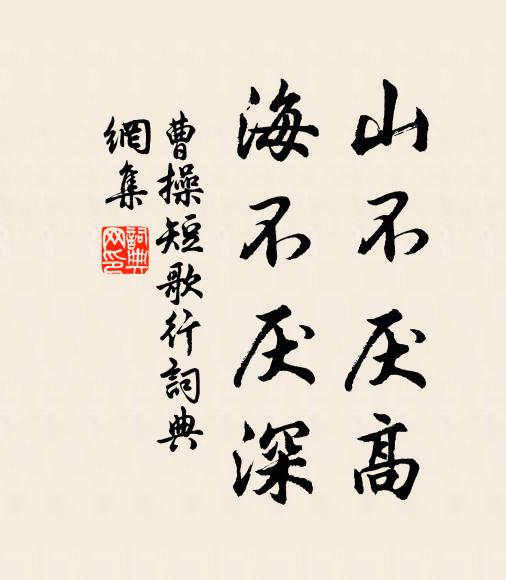 山不厌高
海不厌深
曹操短歌行詞典
網集
詞典
网印